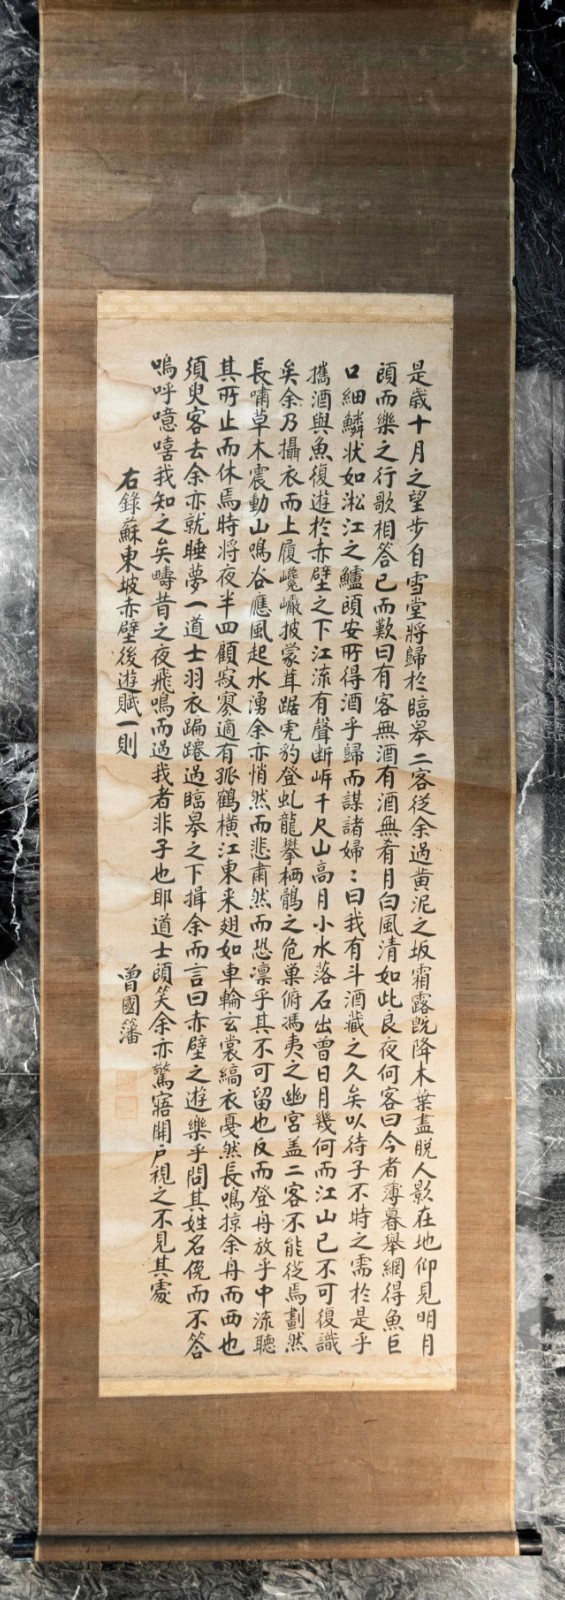 是歲十月之望步自雪堂將歸於臨皋二客從余過黄泥之坂霜露既降木葉盡脱人影在地仰見明月
頋而樂之行歌相答已而歎曰有客無酒有酒無肴月白風清如此良夜何客曰今者薄暮舉網得魚巨
口細鱗状如淞江之鱸頋安所得酒乎歸而謀諸婦〻曰我有斗酒藏之久矣以待子不時之需於是乎
攜酒與魚復遊於赤壁之下江流有聲断岍千尺山高月小水落石出曾日月幾何而江山已不可復識
矣余乃攝衣而上履巉巖披蒙茸踞虎豹登虬龍攀栖鶻之危巢俯馮夷之幽宫盖二客不能從焉劃然
長嘯草木震動山鳴谷應風起水湧余亦悄然而悲肅然而恐凛乎其不可留也反而登舟放乎中流聽
其所止而休焉時将夜半四顧寂寥適有孤鶴横江東来翅如車輪玄裳縞衣戞然長鳴掠余舟而西也
須臾客去余亦就睡夢一道士羽衣蹁躚過臨皋之下揖余而言曰赤壁之遊樂乎問其姓名俛而不答
嗚呼噫嘻我知之矣疇昔之夜飛鳴而過我者非子也耶道士頋笑余亦驚寤開户視之不見其處
右錄蘇東坡赤壁後遊賦一則
曾國籓